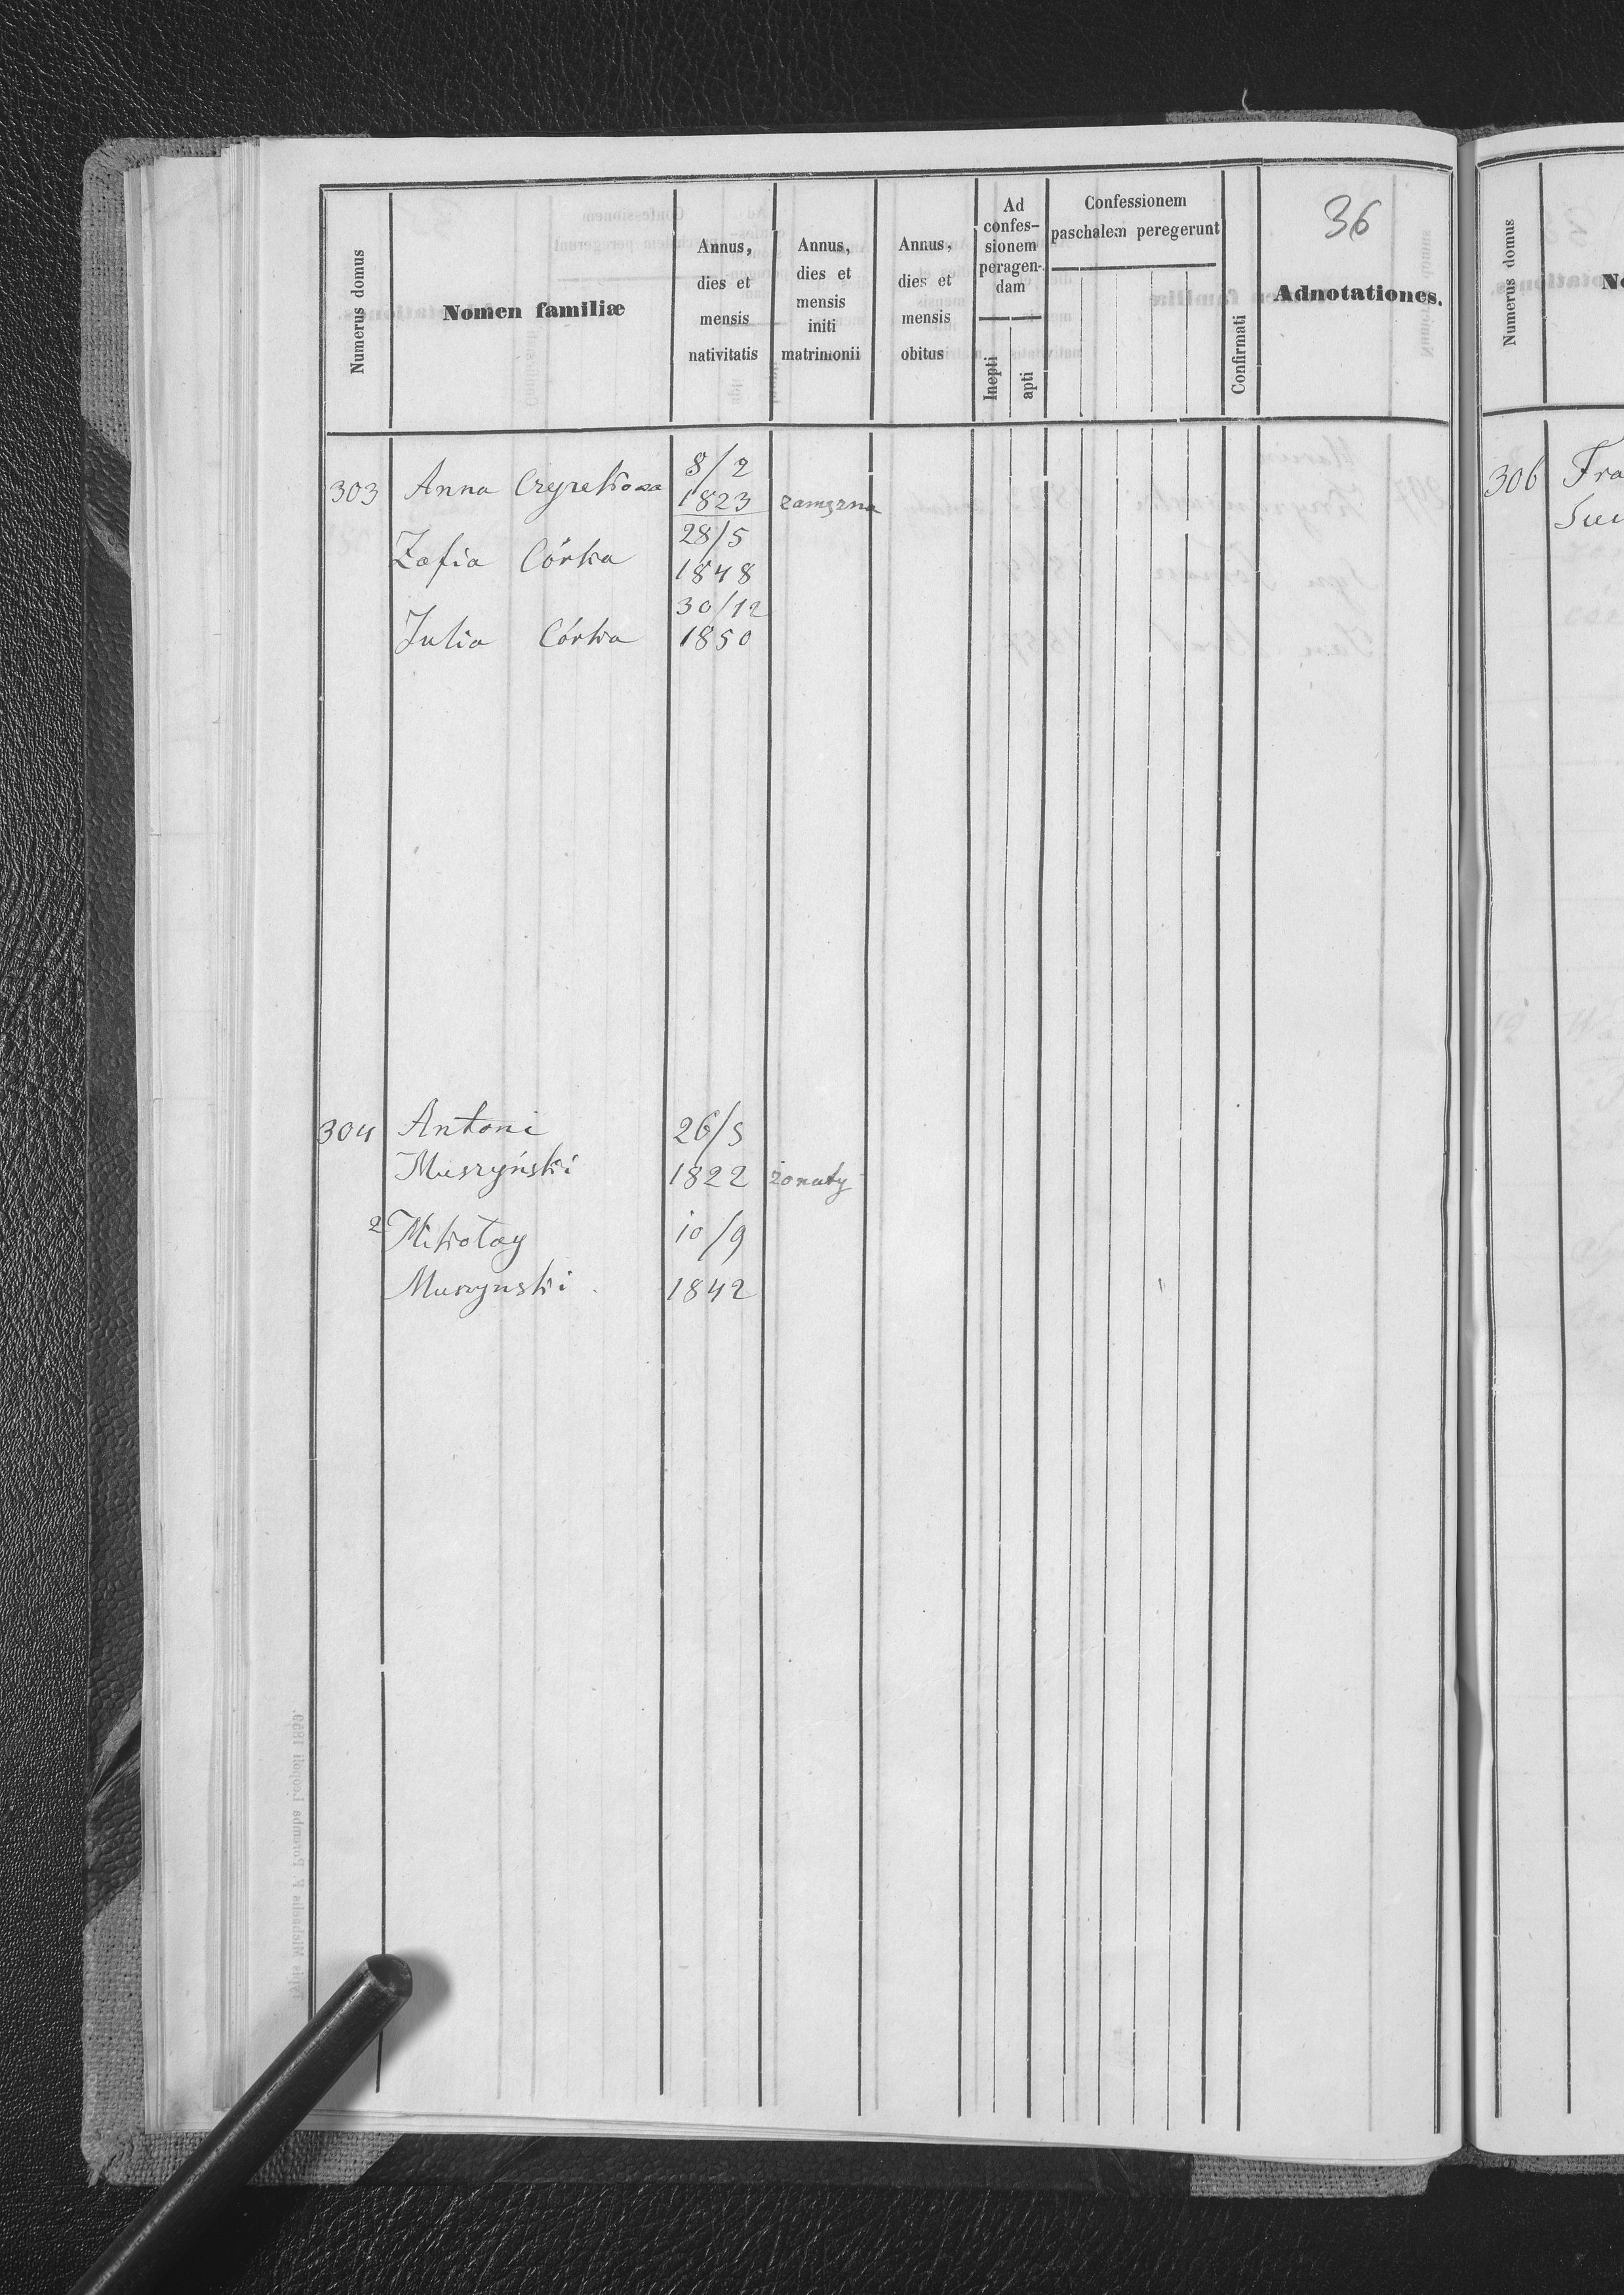 36
Numerus domus
Nomen familiæ
Annus, dies et mensis nativitatis
Annus, dies et mensis initi matrimonii
Annus, dies et mensis obitus
Ad confes- sionem peragen- dam
Inepti
apti
Confessionem paschalem peregerunt
Confirmati
Adnotationes.
Numerus domus
303 Anna 8/2 1823 zamęzna
Zofia Córka 28/5 1848
Julia Córka 30/12 1850
304 Antoni 26/5
Muszyński 1822 żonaty
2 Mikołay 10/9
Muszynski 1842
306 Fra
Typis Michaelis F. Poremba Leopoli 1859.